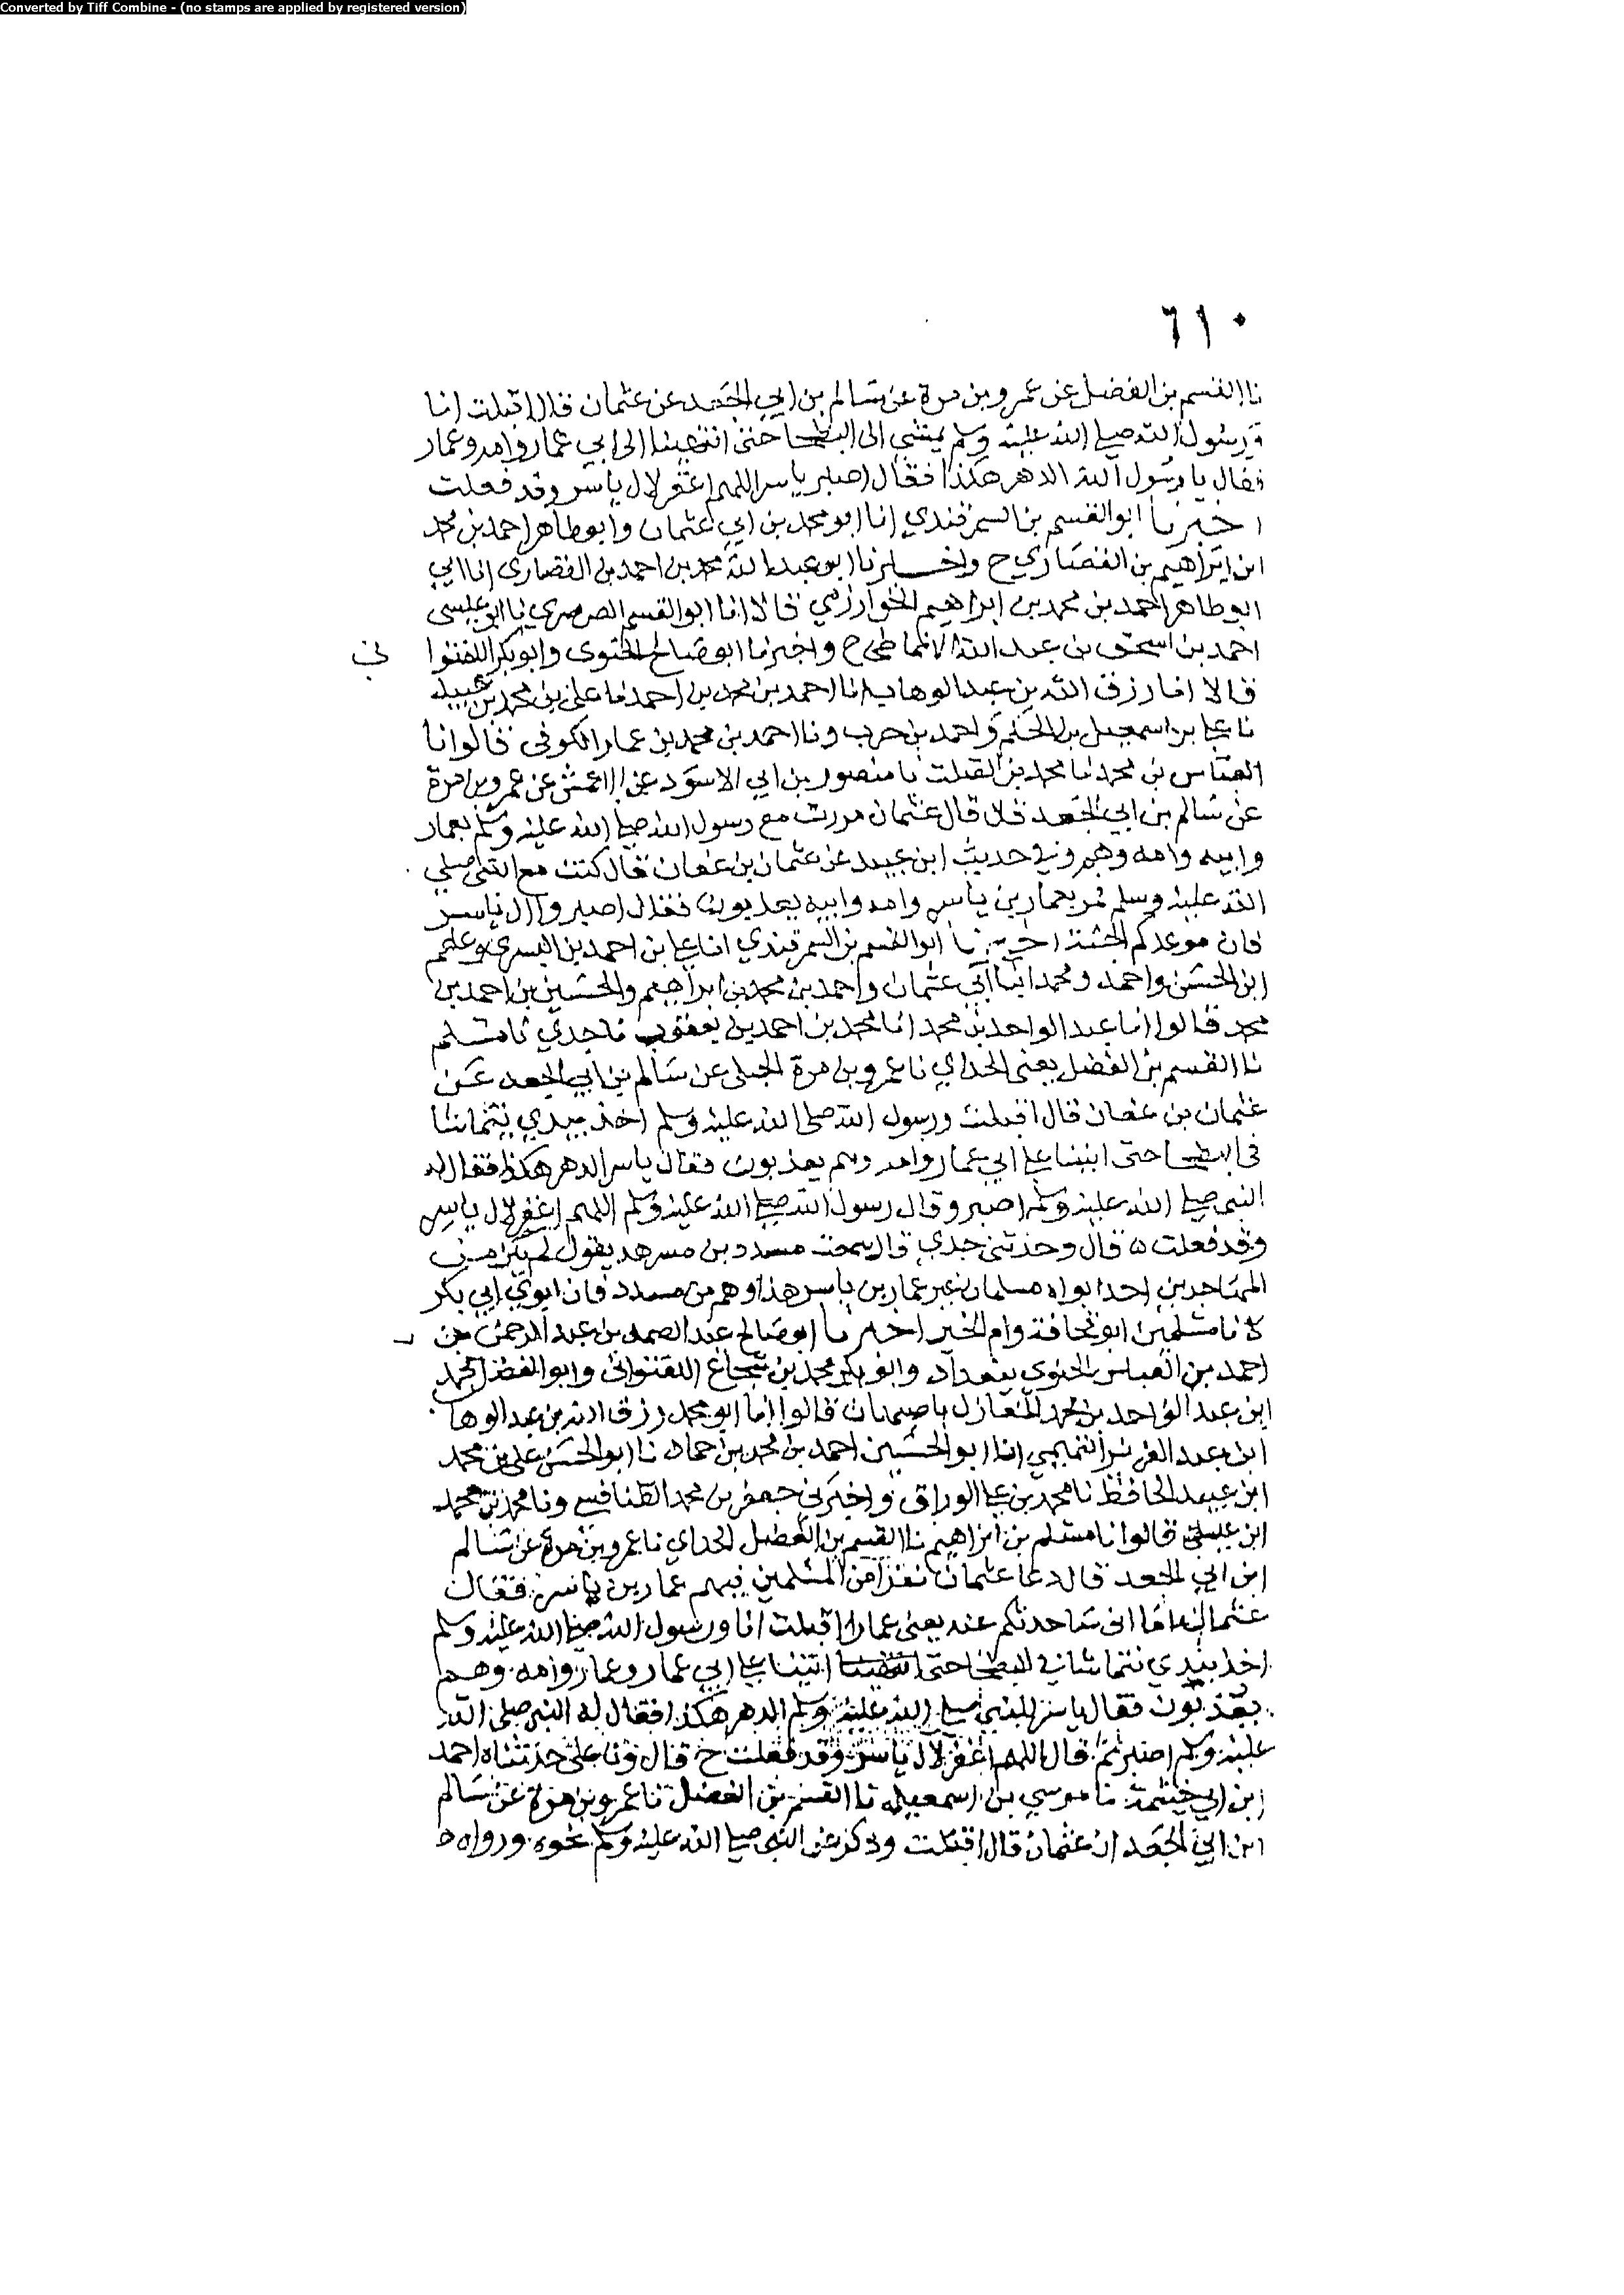 Converted by Tiff Combine - (no stamps are applied by registered version)
٦١٠
نا القسم بن الفضل عن عمرو بن مرة عن سالم بن ابي الجعد عن عثمان قال اقبلت انا
ورسول الله صلى الله عليه وسلم يمشي الى البطحا حتى انتهينا الى ابي عمار وامه وعمار
فقال يا رسول الله الدهر هكذا فقال اصبر ياسر اللهم اغفر لال ياسر وقد فعلت
اخبرنا ابو القسم بن السمرقندي انا ابو محمد بن ابي عثمان وابو طاهر احمد بن محمد
ابن ابراهيم بن القصاري ح واخبرنا ابو عبد الله محمد بن احمد بن القصاري انا ابي
ابو طاهر احمد بن محمد بن ابراهيم الخوارزمي قالا انا ابو القسم الصرصري نا ابو عيسى
احمد بن اسحق بن عبد الله الانماطي ح واخبرنا ابو صالح الحنوى وابو بكر اللفتوا
ني
قالا انا رزق الله بن عبد الوهاب انا احمد بن محمد بن احمد نا علي بن محمد بن عبيد
نا علي بن اسمعيل بن الحكم واحمد بن حرب ونا احمد بن محمد بن عمار الكوفى قالوا نا
العباس بن محمد نا محمد بن الصلت نا منصور بن ابي الاسود عن الاعمش عن عمرو بن مرة
عن سالم بن ابي الجعد قال قال عثمان مررت مع رسول الله صلى الله عليه وسلم بعمار
وابيه وامه وهم وفي حديث ابن عبيد عن عثمان بن عفان قال كنت مع النبي صلي
الله عليه وسلم فمر بعمار بن ياسر وامه وابيه يعذبون فقال اصبروا ال ياسر
فان موعدكم الجنة اخبرنا ابو القسم بن السمرقندي انا علي بن احمد بن البسري وعلي
ابن الحسن واحمد ومحمد ابنا ابي عثمان واحمد بن محمد بن ابراهيم والحسين بن احمد بن
محمد قالوا انا عبد الواحد بن محمد انا محمد بن احمد بن يعقوب نا جدي نا مسلم
نا القسم بن الفضل يعنى الحداي نا عمرو بن مرة الجملى عن سالم بن ابي الجعد عن
عثمان بن عفان قال اقبلت ورسول الله صلى الله عليه وسلم اخذ بيدي نتماشا
فى البطحا حتى اتينا على ابي عمار وامه وهم يعذبون فقال ياسر الدهر هكذا فقال له
النبي صلى الله عليه وسلم اصبر وقال رسول الله صلى الله عليه وسلم اللهم اغفر لال ياسر
وقد فعلت ٥ قال وحدثني جدي قال سمعت مسدد بن مسرهد يقول لم يكن من
المهاجرين احد ابواه مسلمان غير عمار بن ياسر هذا وهم من مسدد فان ابوي ابي بكر
كانا مسلمين ابو قحافة وام الخير اخبرنا ابو صالح عبد الصمد بن عبد الرحمن بن
احمد بن العباس الحنوي ببغداد وابو بكر محمد بن شجاع اللفتوانى وابو الفضل محمد
ابن عبد الواحد بن محمد المغازل باصبهان قالوا انا ابو محمد رزق الله بن عبد الوها
ابن عبد العزيز التميمي انا ابو الحسين احمد بن محمد بن حماد نا ابو الحسن علي بن محمد
ابن عبيد الحافظ نا محمد بن علي الوراق واخبرني جعفر بن محمد الطنافسي ونا محمد بن محمد
ابن عيسى قالوا نا مسلم بن ابراهيم نا القسم بن الفضل الحداي نا عمرو بن مرة عن سالم
ابن ابي الجعد قال دعا عثمان نفرا من المسلمين فيهم عمار بن ياسر فقال
عثمان اما انى ساحدثكم عنه يعنى عمارا اقبلت انا ورسول الله صلى الله عليه وسلم
اخذ بيدي نتماشا في البطحا حتى اتينا على ابي عمار وعمار وامه وهم
يعذبون فقال ياسر للنبي صلى الله عليه وسلم الدهر هكذا فقال له النبي صلى الله
عليه وسلم اصبر ثم قال اللهم اغفر لال ياسر وقد فعلت ح قال ونا علي حدثناه احمد
ابن ابي خيثمة نا موسي بن اسمعيل نا القسم بن الفضل نا عمرو بن مرة عن سالم
ابن ابي الجعد ان عثمان قال اقبلت وذكر عن النبي صلى الله عليه وسلم نحوه ورواه